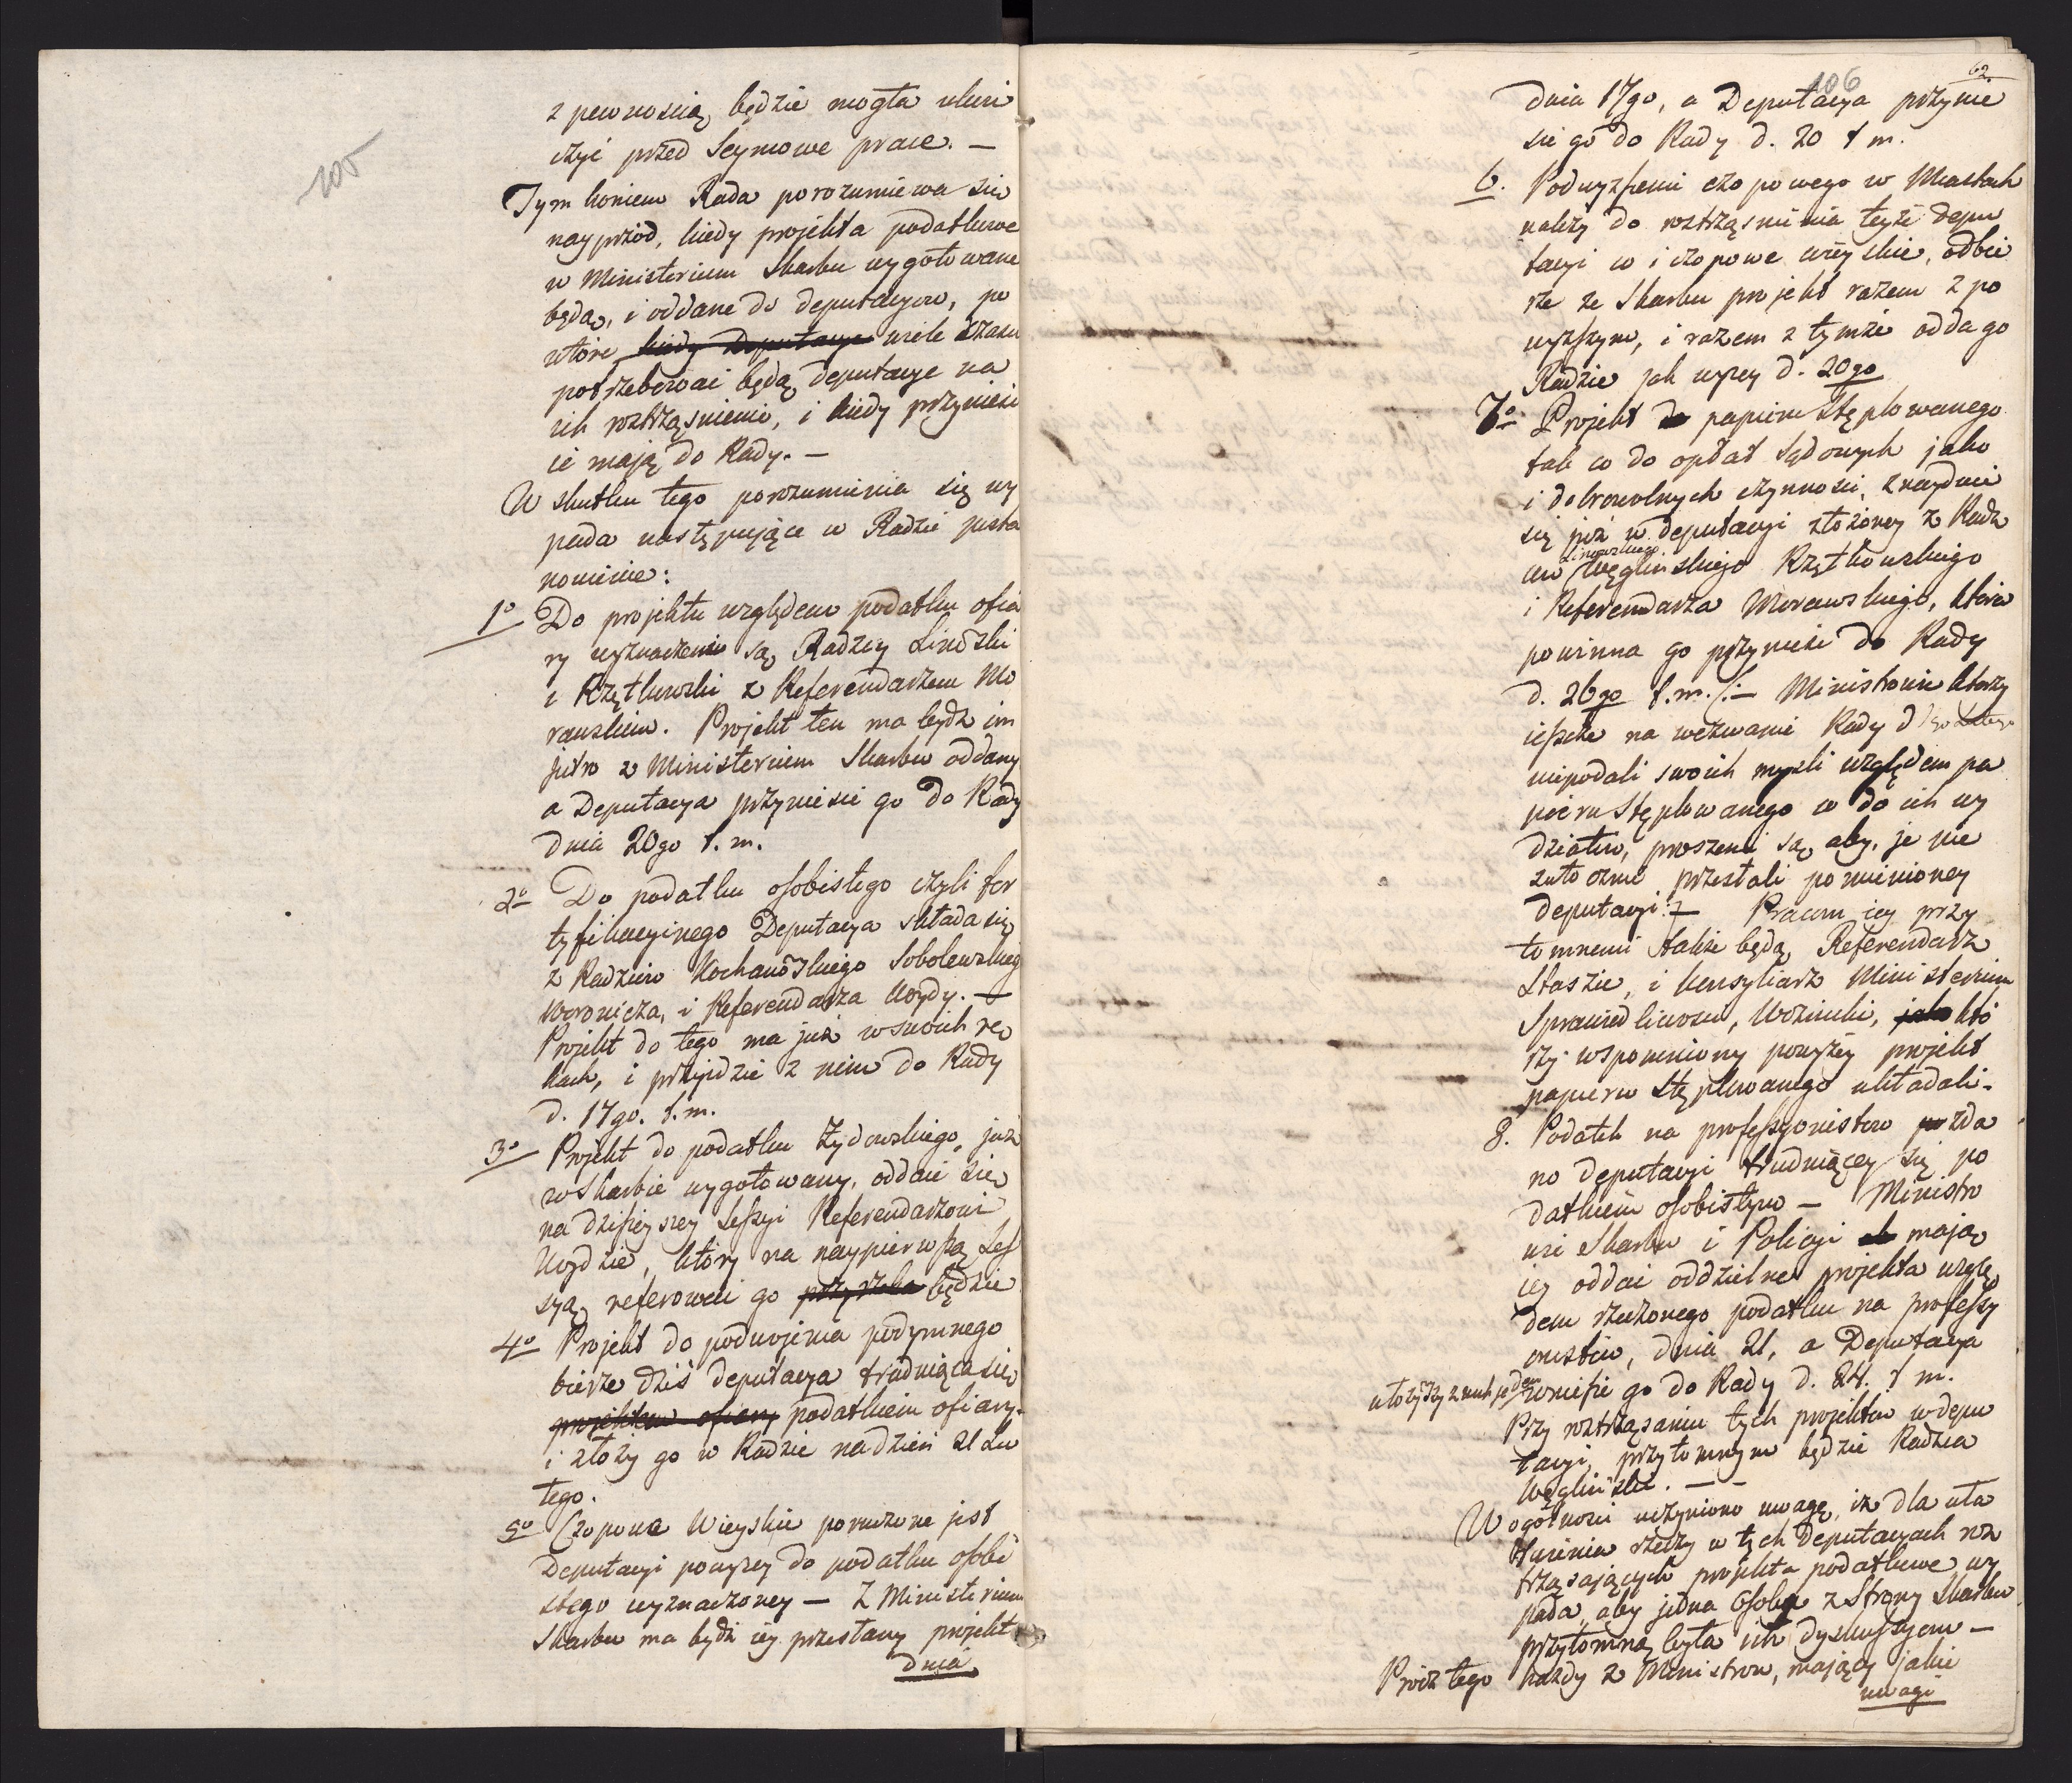 105
z pewnością będzie mogła ukoń
czyć przed Seymowe prace. —
Tym koncem Rada porozumiewa się
nayprzód, kiedy projekta podatkowe
w Ministerium Skarbu wygotowane
będą, i oddane do deputacyow, po
wtóre kiedy Deputacye wiele czasu
potrzebować będą deputacye na
ich roztrząśnienie, i kiedy przynieść
ie mają do Rady. —
W skutku tego porozumienia się wy
pada następujące w Radzie posta
nowienie:
1o Do projektu względem podatku ofia
ry wyznaczeni są Radzcy Linoski
i Rzętkowski z Referendarzem Mo
rawskim. Projekt ten ma bydź im
jutro z Ministerium Skarbu oddany
a Deputacya przyniesie go do Rady
dnia 20go t. m.
2o Do podatku osobistego czyli for
tyfikacyinego Deputacya składa się
z Radzców Kochanoskiego Sobolewskieg
Woronicza, i Referendarza Woydy. —
Projekt do tego ma już w swoich rę
kach, i przyidzie z nim do Rady
d. 17go. t. m.
3o Projekt do podatku żydowskiego już
w Skarbie wygotowany, oddaie się
na dzisieyszey Sessyi Referendarzowi
Woydzie, który na naypierwszą Ses
syą referować go będzie
4o Projekt do podwojenia podymnego
bierze dziś deputacya trudniąca się
projektem ofiary podatkiem ofiary
i złoży go w Radzie na dzień 21 Lu
tego.
5o Czopowe Wieyskie poruczone jest
Deputacyi powyzey do podatku osobi
stego wyznaczoney — Z Ministerium
Skarbu ma bydź iey przesłany projekt
dnia
106
62
dnia 17go, a Deputacya przynie
sie go do Rady d. 20 t m.
6. Podwyższenie czopowego w Miastach
należy do roztrząśnienia teyże depu
tacyi co i czopowe wieyskie, odbie
rze ze Skarbu projekt razem z po
wyższym, i razem z tymże odda go
Radzie jak wyzey d. 20go
7o Projekt do papieru Stęplowanego
tak co do opłat Sądowych jako
i dobrowolnych czynności, znayduie
się już w deputacyi złożoney z Radz
Linowskiego
ców Węglinskiego Rzętkowskiego
i Referendarza Morawskiego, która
powinna go przynieść do Rady
d. 26go t. m. /: — Ministrowie którzy
ieszcze na wezwanie Rady d 1go Lutego
niepodali swoich mysli względem pa
pieru Stęplowanego co do ich wy
działów, proszeni są aby je nie
zwłocznie przesłali pomienioney
deputacyi :/ — Pracom iey przy
tomnemi także będą Referendarz
Staszic, i konsyliarz Ministerium
Sprawiedliwości, Woźnicki, jako któ
rzy wspomniony powyzey projekt
papieru Stęplowanego układali.
8. Podatek na professyonistów zda
no deputacyi trudniącey się po
datkiem osobistym — Ministro
wie Skarbu i Policyi mają
iey oddać oddzielne projekta wzglę
dem rzeczonego podatku na professy
onistów, dnia 21, a Deputacya
ułożywszy z nich jeden wniesie go do Rady d. 24. t m.
Przy roztrząsaniu tych projektów w depu
tacyi, przytomnym będzie Radzca
Węgliński. — —
W ogólności uczyniono uwagę, iż dla uła
twienia rzeczy w tych Deputacyach roz
trząsających projekta podatkowe wy
pada, aby jedna Osoba z Strony Skarbu
przytomną była ich dyskussyom —
Prócz tego każdy z Ministrow, mający jakie
uwagi